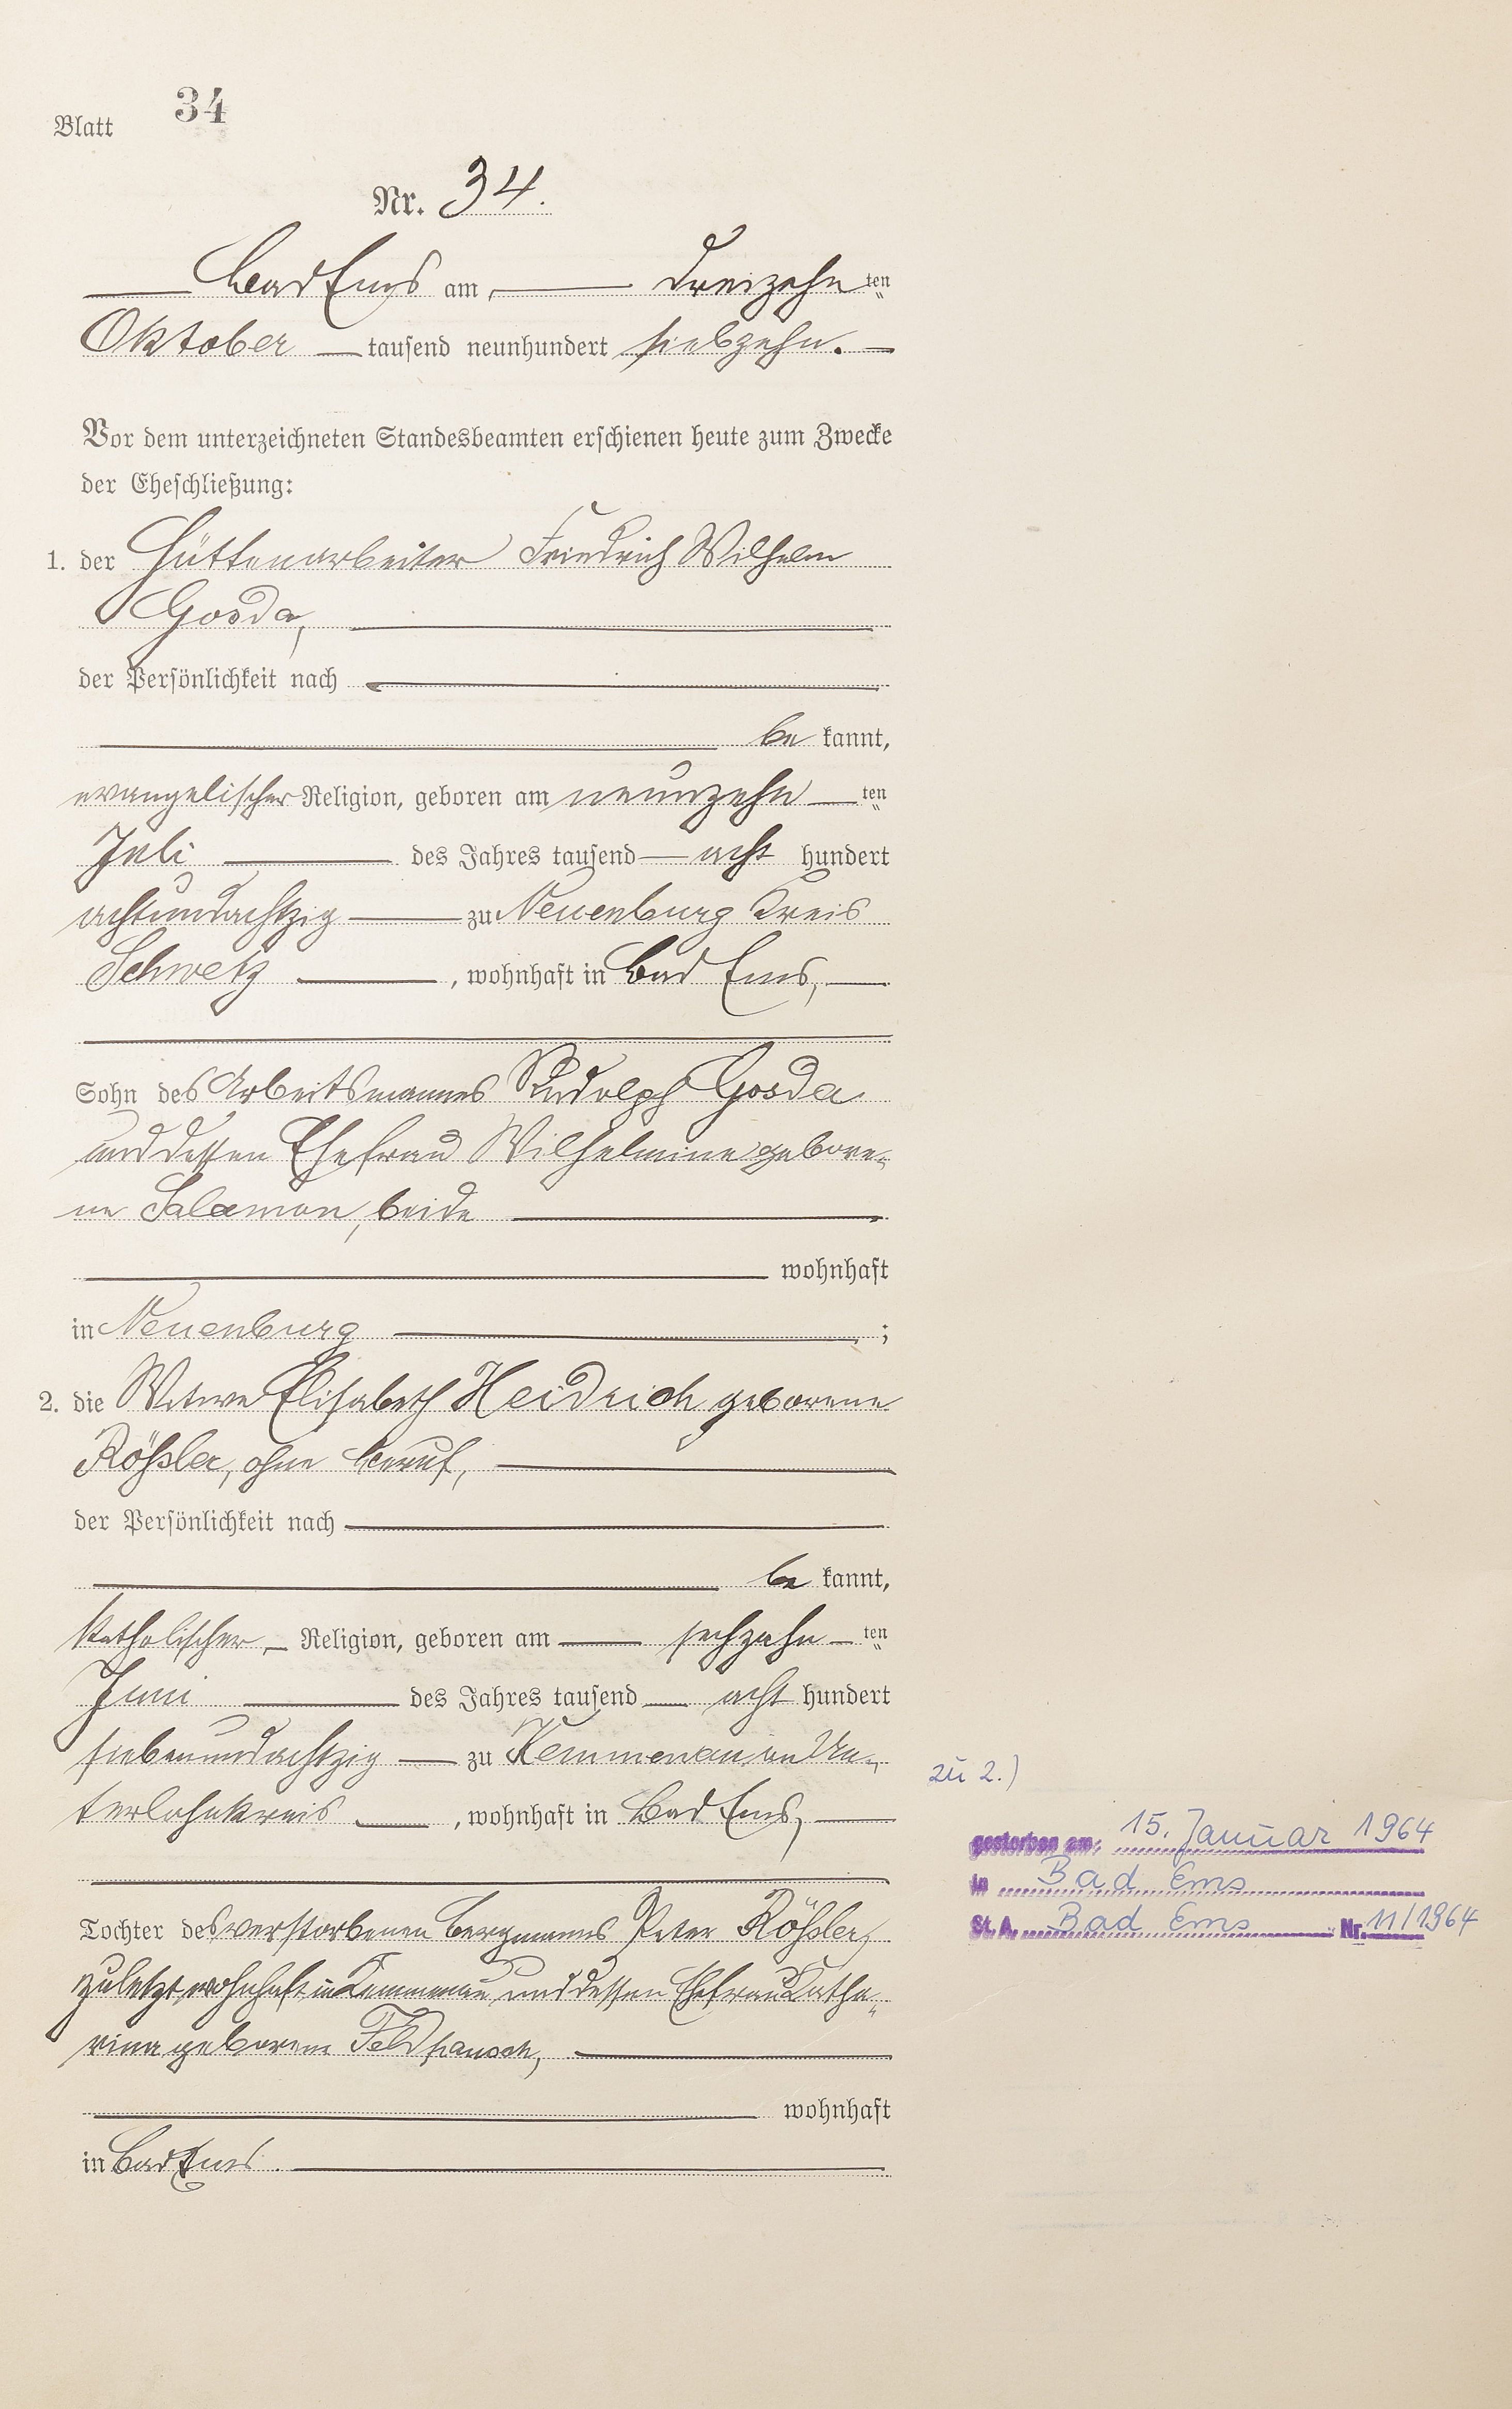 Blatt 34
Nr. 34.
Bad Ems am dreizehn ten
Oktober tausend neunhundert siebzehn.
Vor dem unterzeichneten Standesbeamten erschienen heute zum Zwecke
der Eheschließung:
1. der Hüttenarbeiter Friedrich Wilhelm
Gosda,
der Persönlichkeit nach
be kannt,
evangelischer Religion, geboren am neunzehn ten
Juli des Jahres tausend acht hundert
achtundachtzig zu Neuenburg Kreis
Schwetz, wohnhaft in Bad Ems,
Sohn des Arbeitsmannes Rudolph Gosda
und dessen Ehefrau Wilhelmine gebore-
ne Salamon, beide
wohnhaft
in Neuenburg ;
2. die Witwe Elisabeth Heidrich geborene
Rößler, ohne Beruf,
der Persönlichkeit nach
be kannt,
katholischer Religion, geboren am sechzehn ten
Juni des Jahres tausend acht hundert
siebenundachtzig zu Kemmenau im Un-
terlahnkreis, wohnhaft in Bad Ems,
zu 2.)
gestorben am: 15. Januar 1964
in Bad Ems
St. A. Bad Ems Nr. 11/1964
Tochter des verstorbenen Bergmanns Peter Rößler,
zuletzt wohnhaft in Kemmenau und dessen Ehefrau Katha-
rina geborene Feldpausch,
wohnhaft
in Bad Ems.